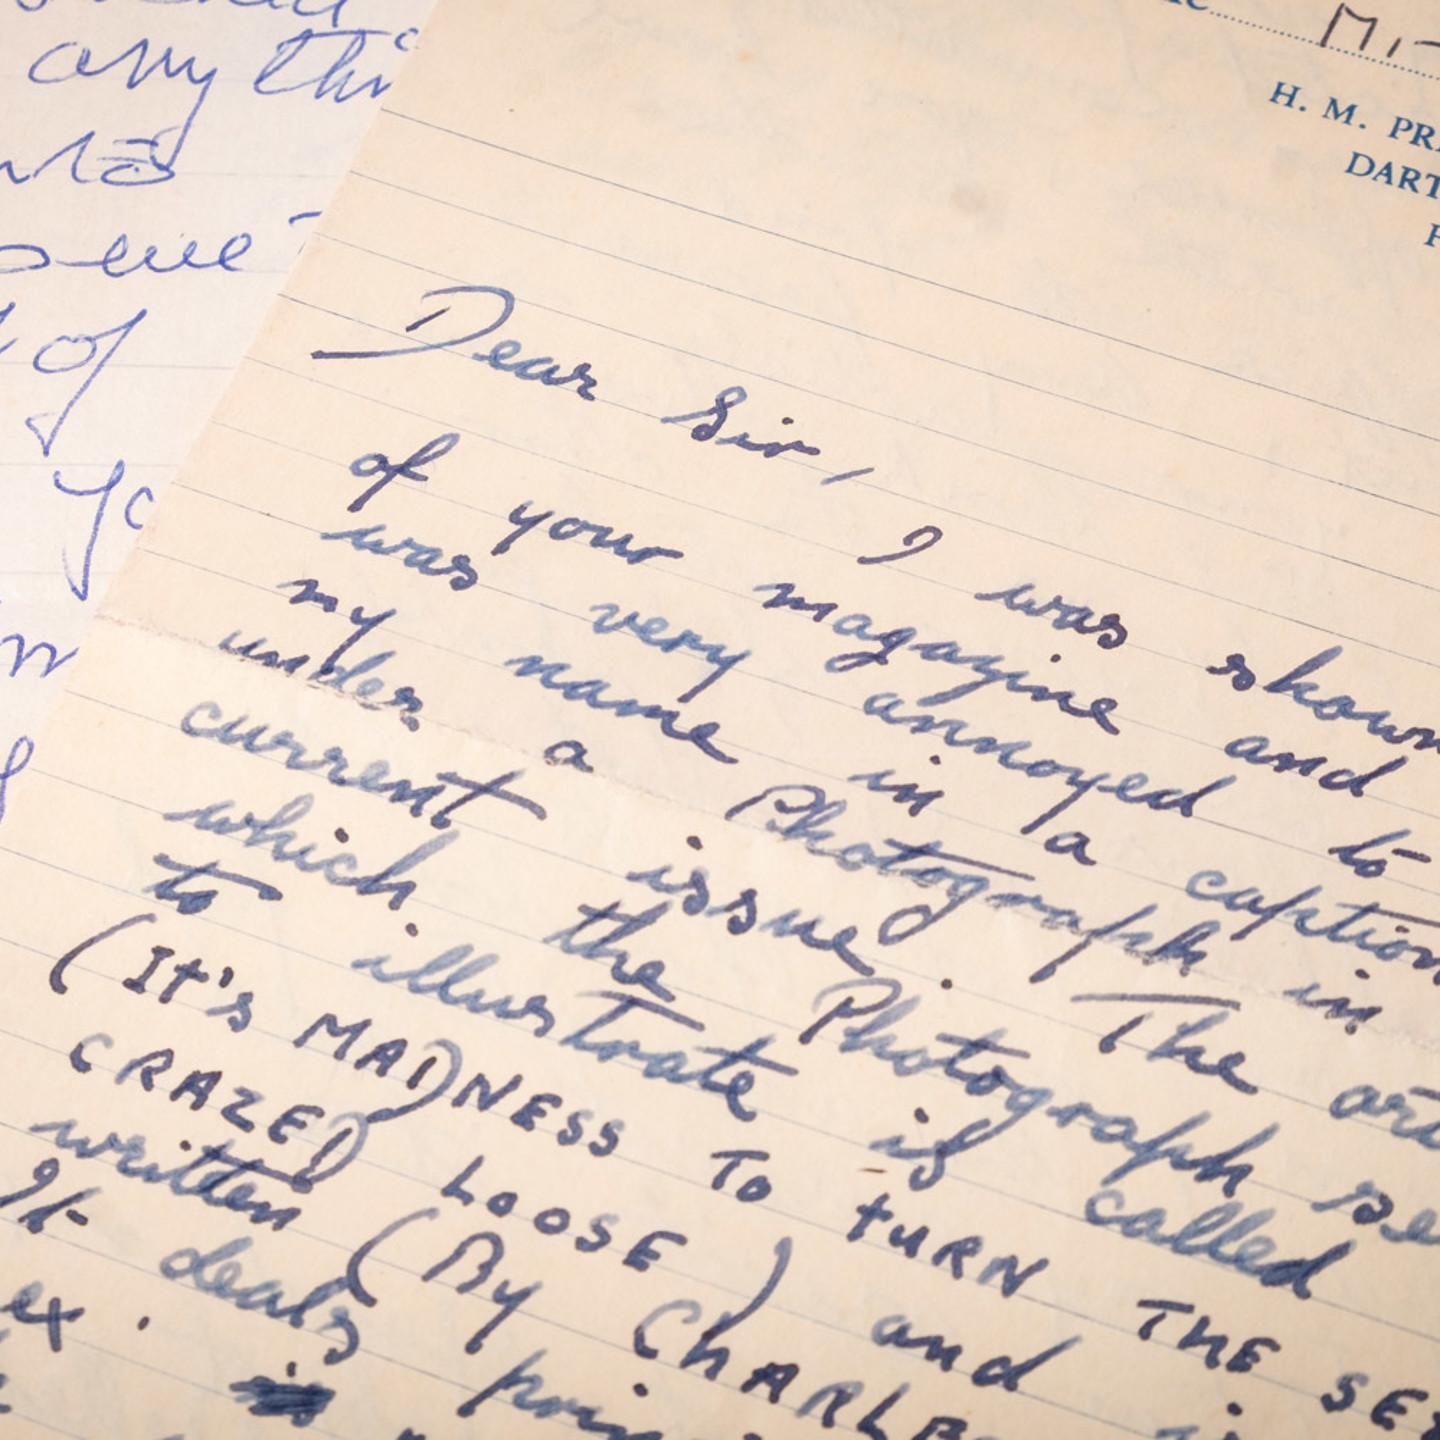 any thi
of
H. M. PRI
DART
Dear Sir,
I was shown
of your magazine and
was very annoyed to
my name in a caption
under a Photograph in
current issue. The art
which the Photograph se
to illustrate is called
(It's MADNESS TO TURN THE SEX
CRAZED LOOSE) and i
written (By CHARLE
It deals prin
ex.